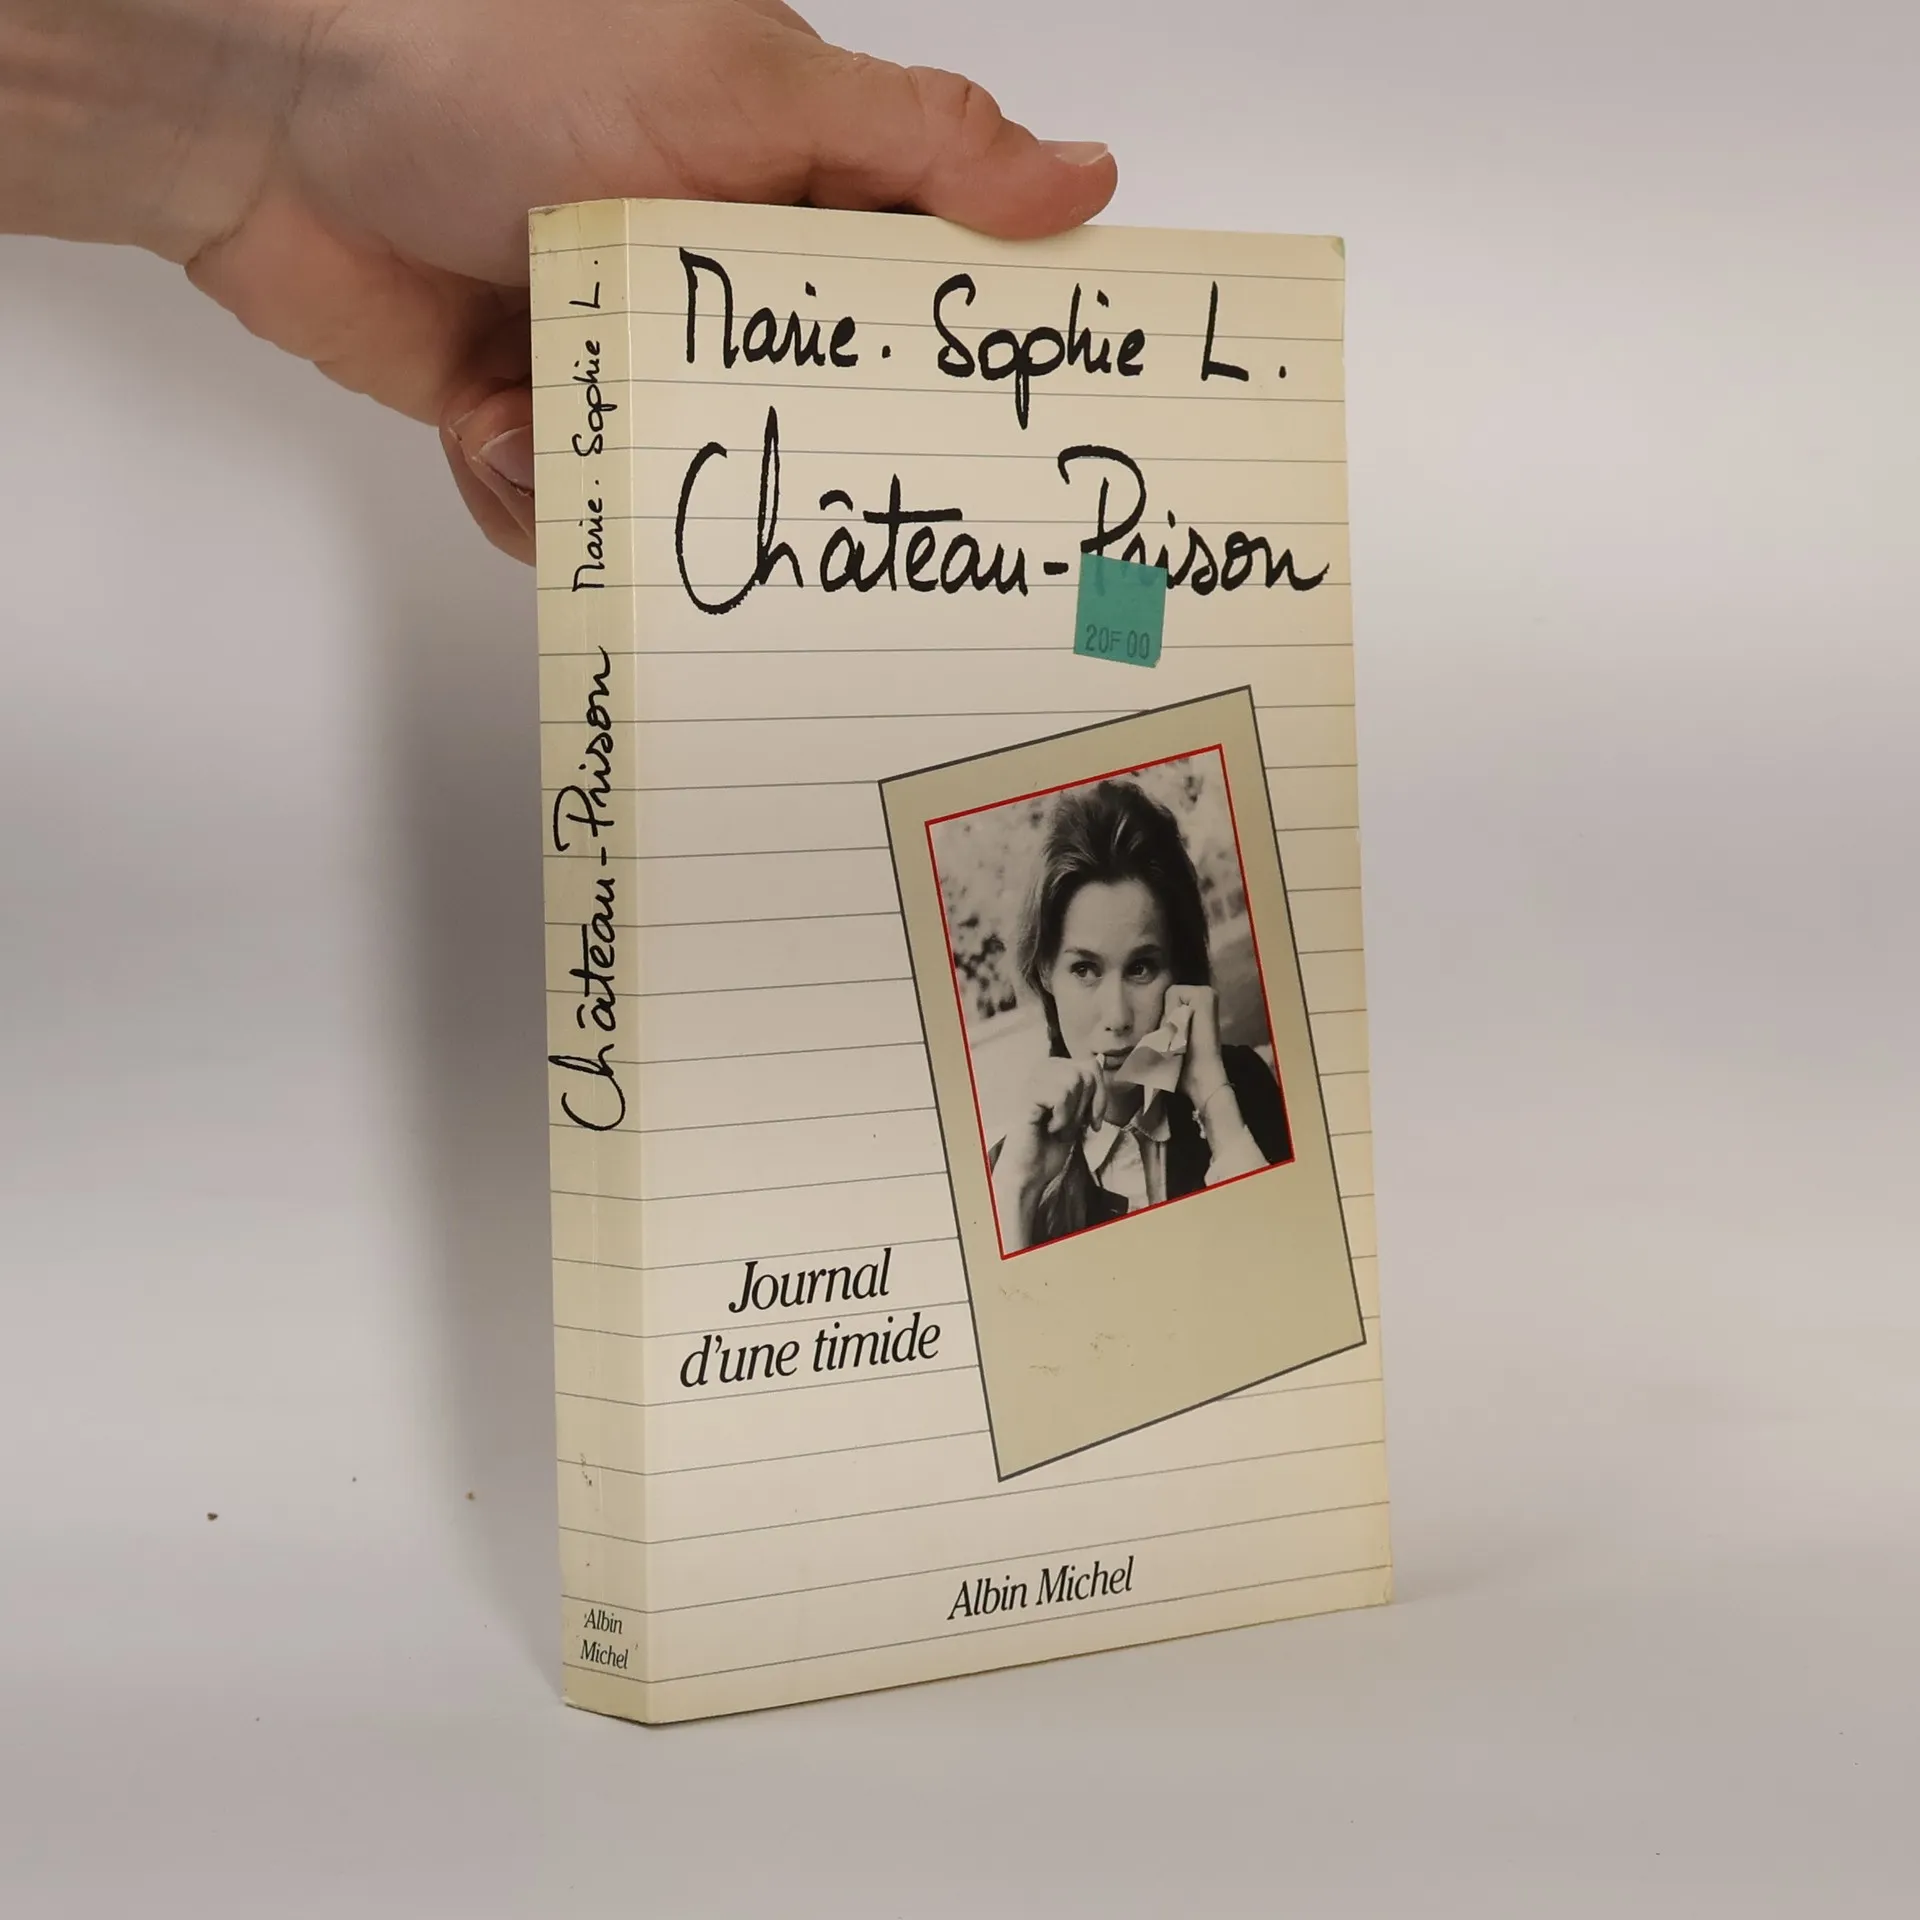 Marie. Sophie L.
Château-Prison
20F00
Journal
d'une timide
Albin Michel
Château-Prison Marie. Sophie L.
Albin
Michel